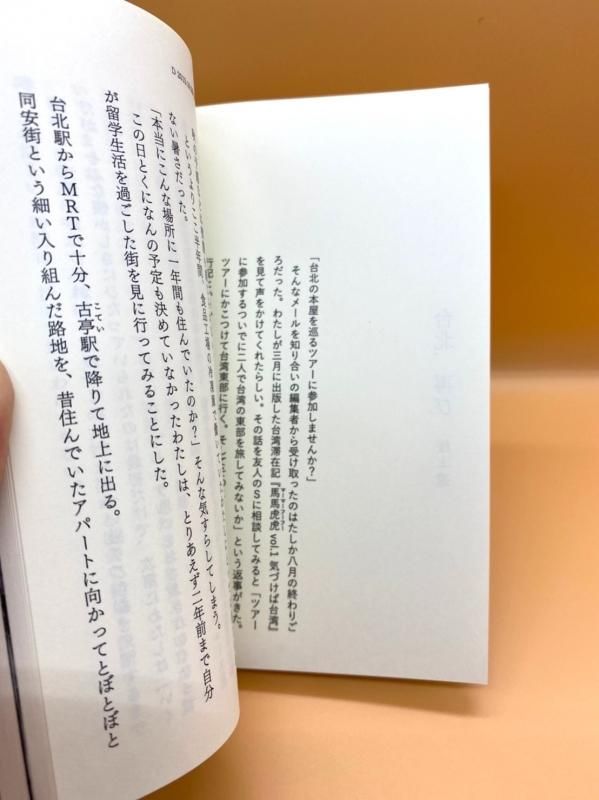 「台北の本屋を巡るツアーに参加しませんか?」
そんなメールを知り合いの編集者から受け取ったのはたしか八月の終わりご
ろだった。わたしが三月に出版した台湾滞在記『馬馬虎虎vol.1 気づけば台湾』
マーマーフーフー
を見て声をかけてくれたらしい。その話を友人のSに相談してみると「ツアー
に参加するついでに二人で台湾の東部を旅してみないか」という返事がきた。
ツアーにかこつけて台湾東部に行く。
というよりここ半年間、食品工場の
ない暑さだった。
「本当にこんな場所に一年間も住んでいたのか?」そんな気すらしてしまう。
この日とくになんの予定も決めていなかったわたしは、とりあえず二年前まで自分
が留学生活を過ごした街を見に行ってみることにした。
台北駅からMRTで十分、古亭駅で降りて地上に出る。
こてい
同安街という細い入り組んだ路地を、昔住んでいたアパートに向かってとぼとぼと